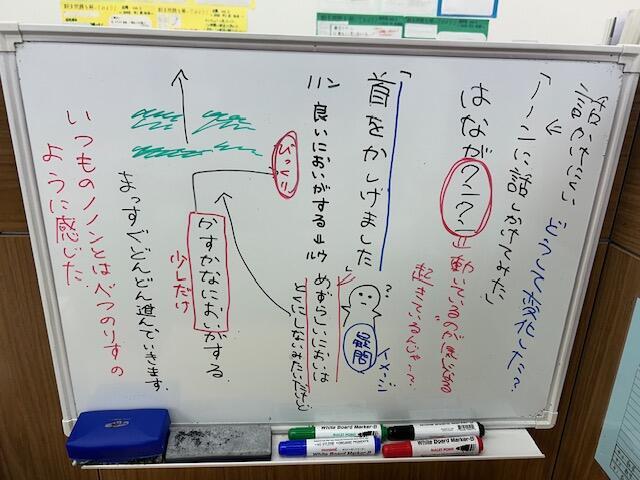 話しかけにくい
どうして変化した?
「ノノンに話しかけてみた」
はながクンクン
動いているのが気になる
起きているんじゃ…?
「首をかしげました
?
疑問
イメージ
ノノン 良いにおいがする
ルウ めずらしいにおいは
とくにしないみたいだけど
びっくり
かすかなにおいがする
少しだけ
まっすぐどんどん進んでいきます。
いつものノノンとはべつのりすの
ように感じた
White Board Marker-B
BULLET POINT
White Board Marker-B
White Board Marker-B
BULLET POINT